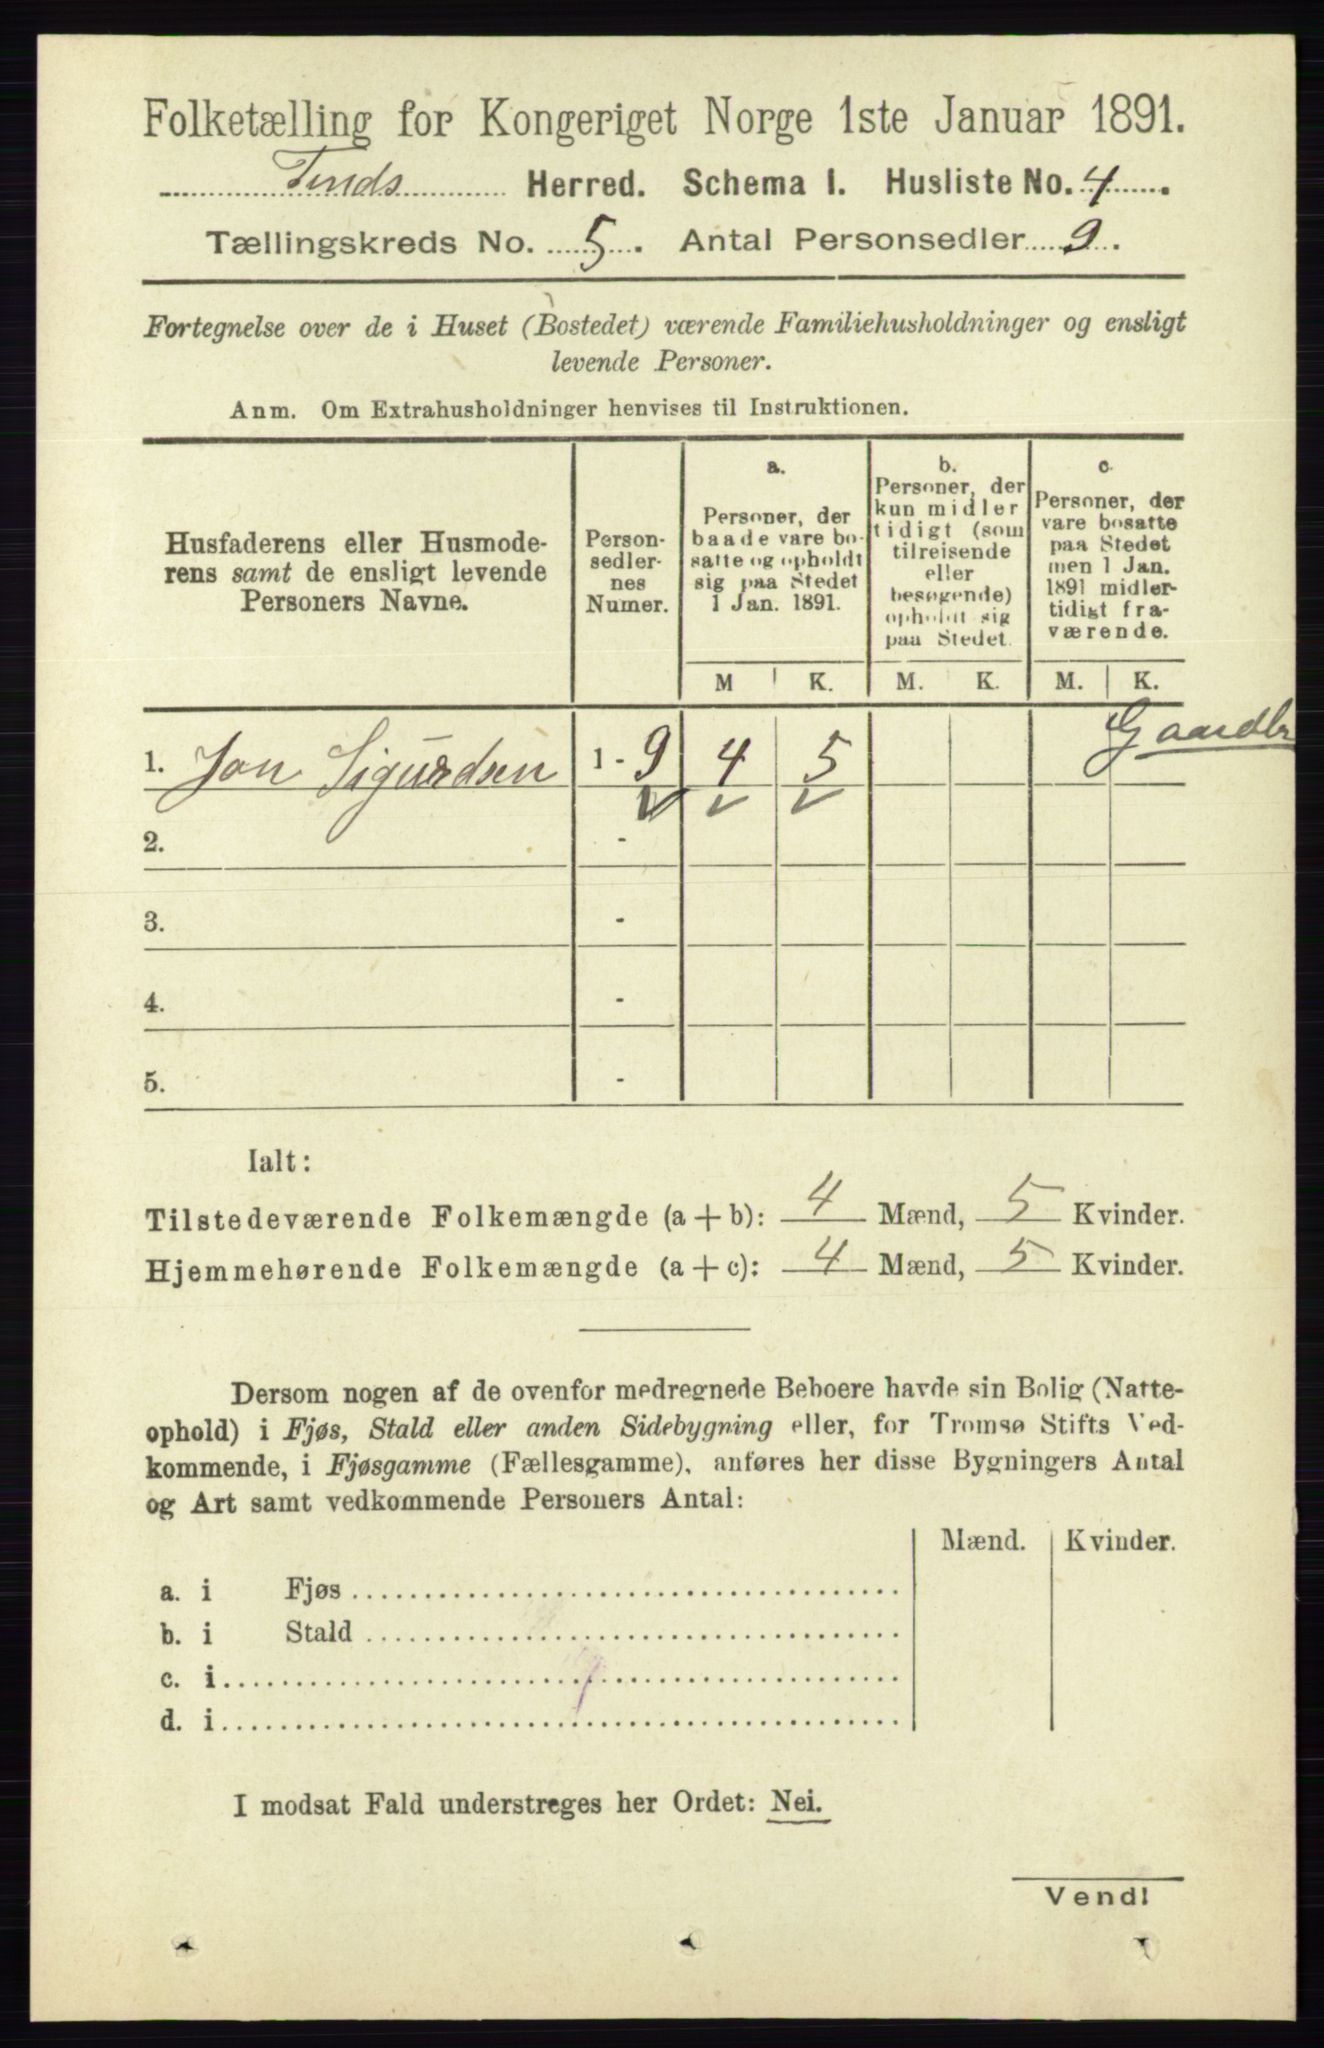 Folketælling for Kongeriget Norge 1ste Januar 1891.
Tinds Herred. Schema I. Husliste No. 4.
Tællingskreds No. 5. Antal Personsedler 9.
Fortegnelse over de i Huset (Bostedet) værende Familiehusholdninger og ensligt
levende Personer.
Anm. Om Extrahusholdninger henvises til Instruktionen.
Husfaderens eller Husmode-
rens samt de ensligt levende
Personers Navne.
Person-
sedler-
nes
Numer.
a.
Personer, der
baade vare bo-
satte og opholdt
sig paa Stedet
1 Jan. 1891.
b.
Personer, der
kun midler
tidigt (som
tilreisende
eller
besøgende)
opholdt sig
paa Stedet.
c.
Personer, der
vare bosatte
paa Stedet
men 1 Jan.
1891 midler-
tidigt fra-
værende.
M K. M. K. M. K.
1. Jon Sigurdsen 1 - 9 4 5 Gaardbr
2. -
3. -
4. -
5. -
Ialt:
Tilstedeværende Folkemængde (a + b): 4 Mænd, 5 Kvinder.
Hjemmehørende Folkemængde (a + c): 4 Mænd, 5 Kvinder.
Dersom nogen af de ovenfor medregnede Beboere havde sin Bolig (Natte-
ophold) i Fjøs, Stald eller anden Sidebygning eller, for Tromsø Stifts Ved-
kommende, i Fjøsgamme (Fællesgamme), anføres her disse Bygningers Antal
og Art samt vedkommende Personers Antal:
Mænd. Kvinder.
a. i Fjøs
b. i Stald
c. i
d. i
I modsat Fald understreges her Ordet: Nei.
Vend!